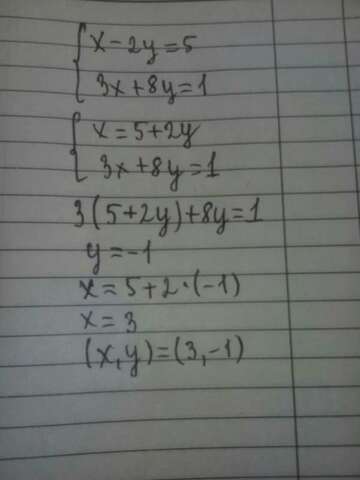 x-2y=5
3x+8y=1
x=5+2y
3x+8y=1
3(5+2y)+8y=1
y=-1
x=5+2·(-1)
x=3
(x,y)=(3,-1)